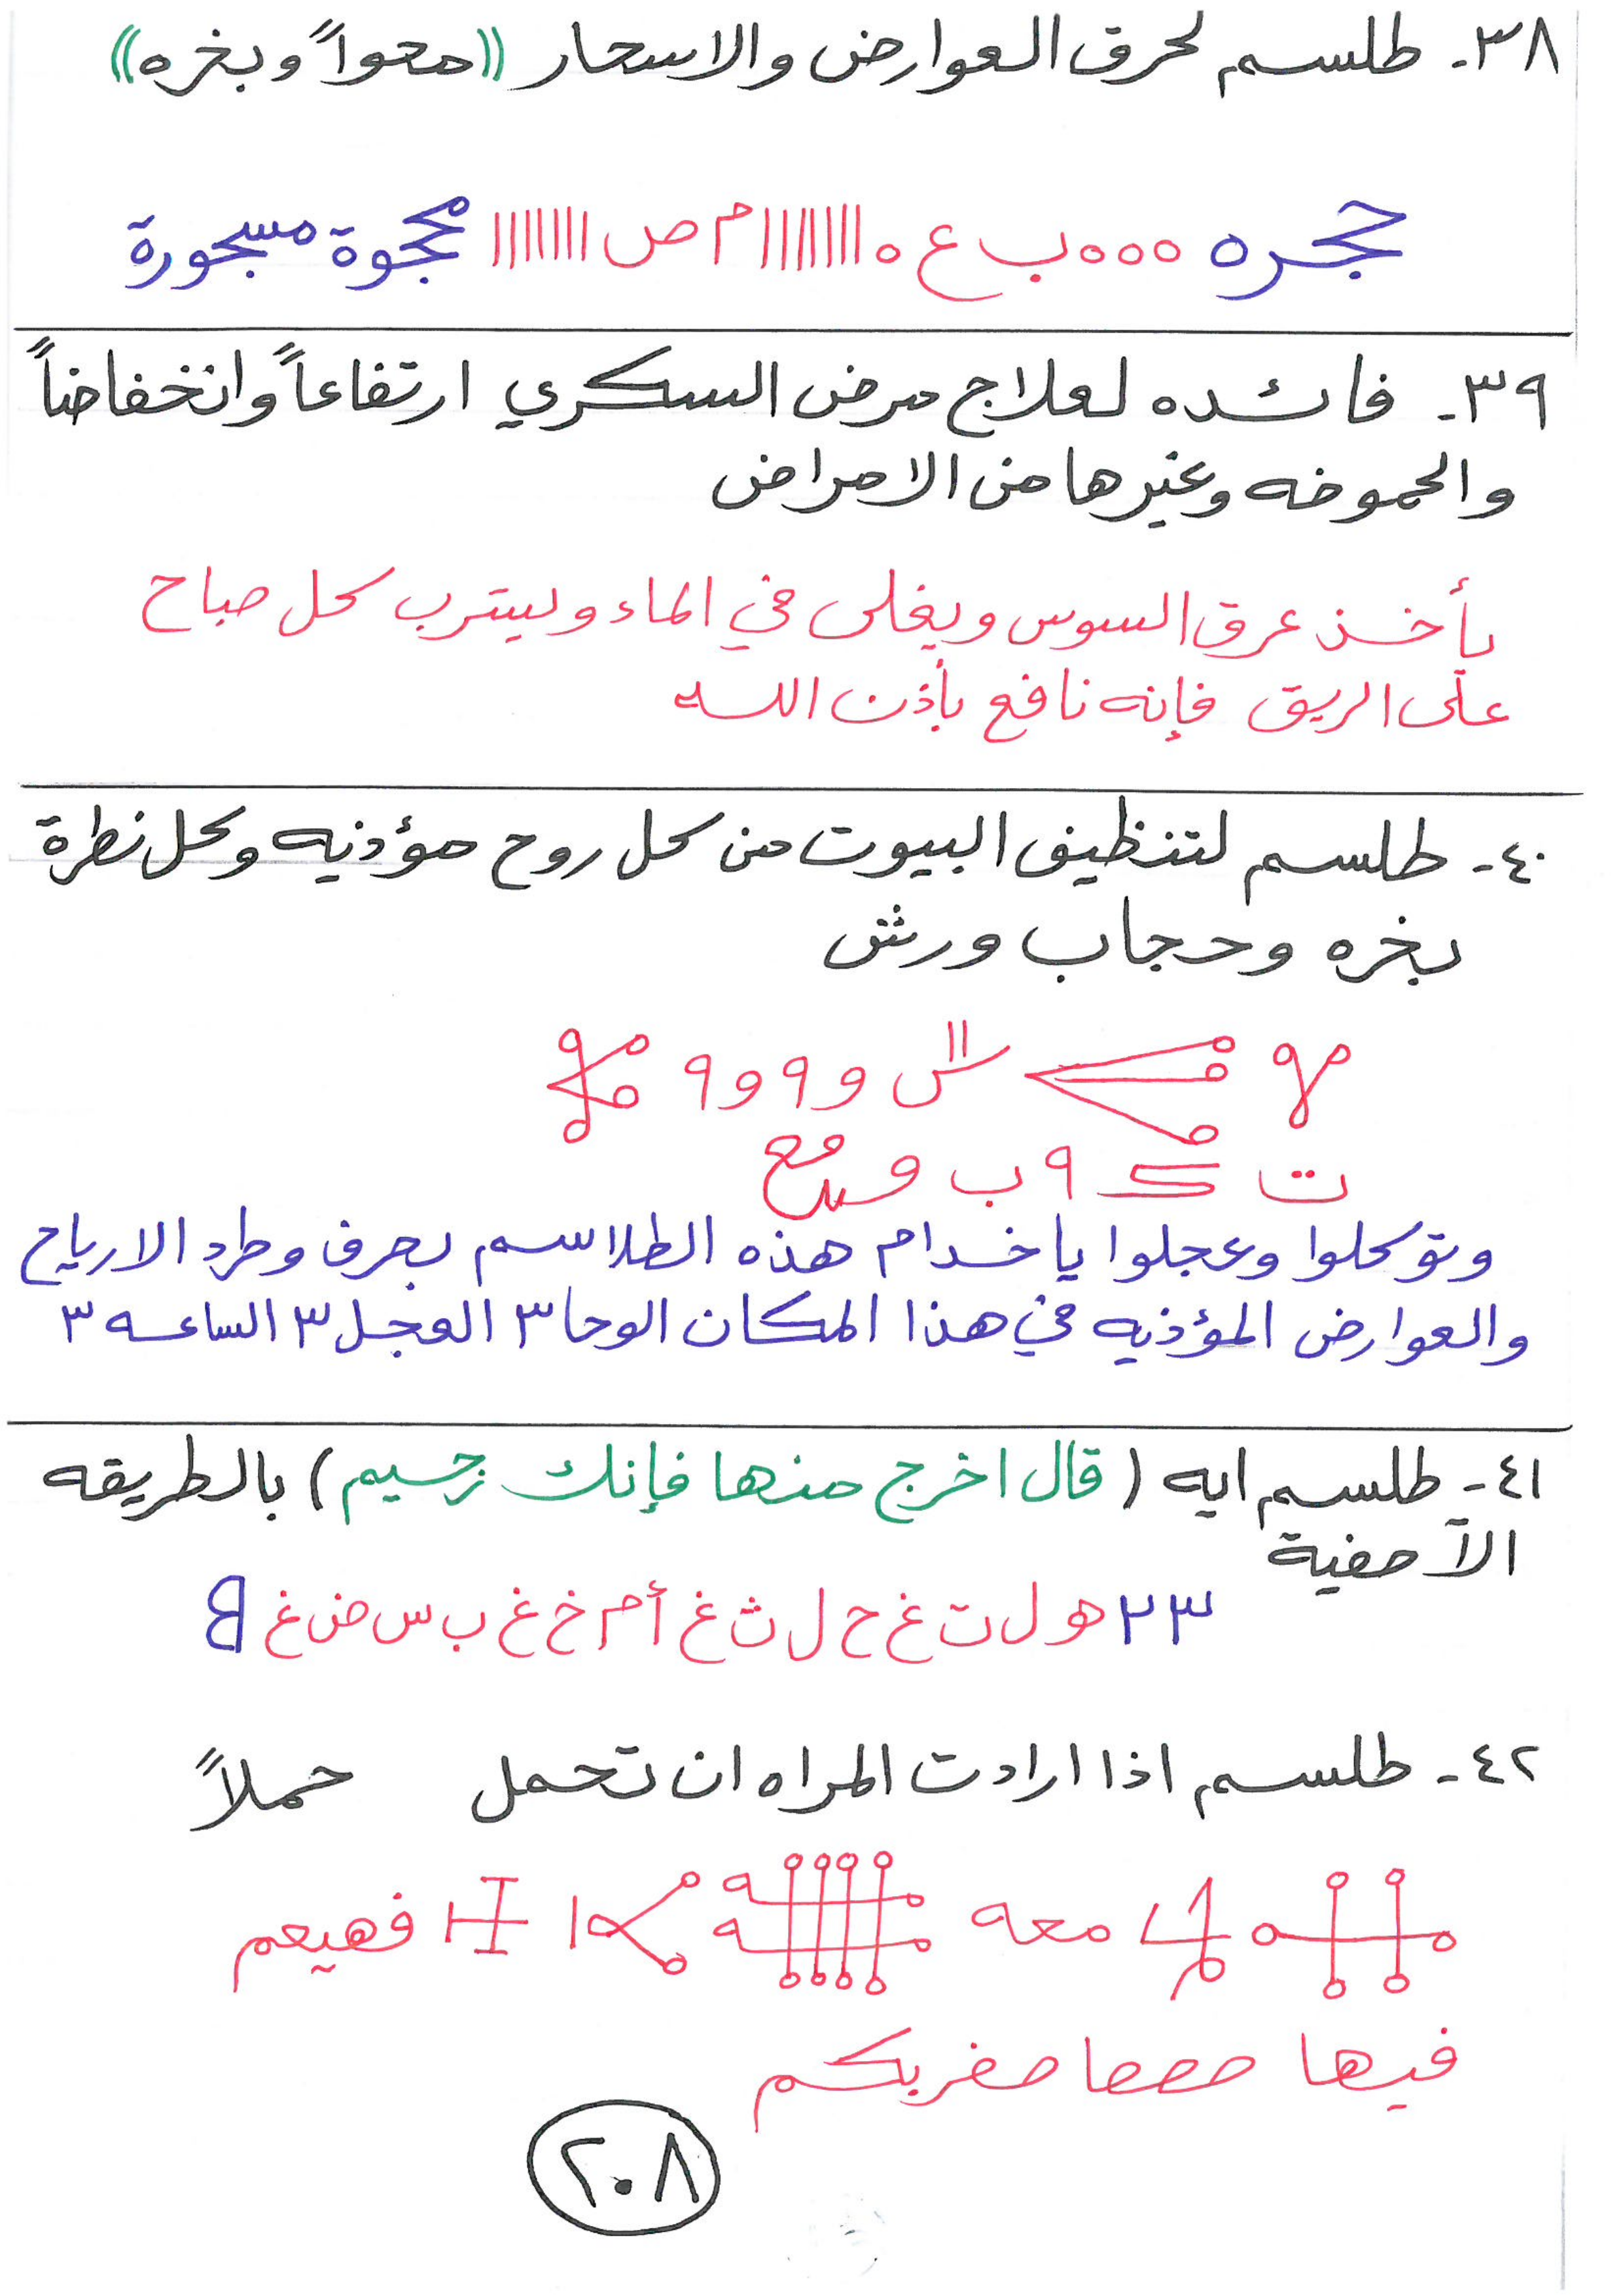 ٣٨- طلسم لحرق العوارض والاسحار ((محواً وبخره))
حجره ٥٥٥ ب ع ٥ ااااااا م ص ااااااا محجوة مسجورة
٣٩- فائده لعلاج مرض السكري ارتفاعاً وانخفاضاً
والحموضه وغيرها من الامراض
يأخذ عرق السوس ويغلى في الماء وليشرب كل صباح
على الريق فإنه نافع بأذن الله
٤٠- طلسم لتنظيف البيوت من كل روح مؤذيه وكل نظرة
بخره وحجاب ورش
و ٩ و ٩
ت ٩ ب و
وتوكلوا وعجلوا ياخدام هذه الطلاسم بحرف وطرد الارياح
والعوارض المؤذيه في هذا المكان الوحا ٣ العجل ٣ الساعه ٣
٤١- طلسم ايه (قال اخرج منها فإنك رجيم) بالطريقه
الآصفية
٢٣ ه ل ت غ ح ل ث غ أ م خ غ ب س ض غ
٤٢- طلسم اذا ارادت المراه ان تحمل حملاً
معه فهيعم
فيها صعصا صفربكم
٢٠٨